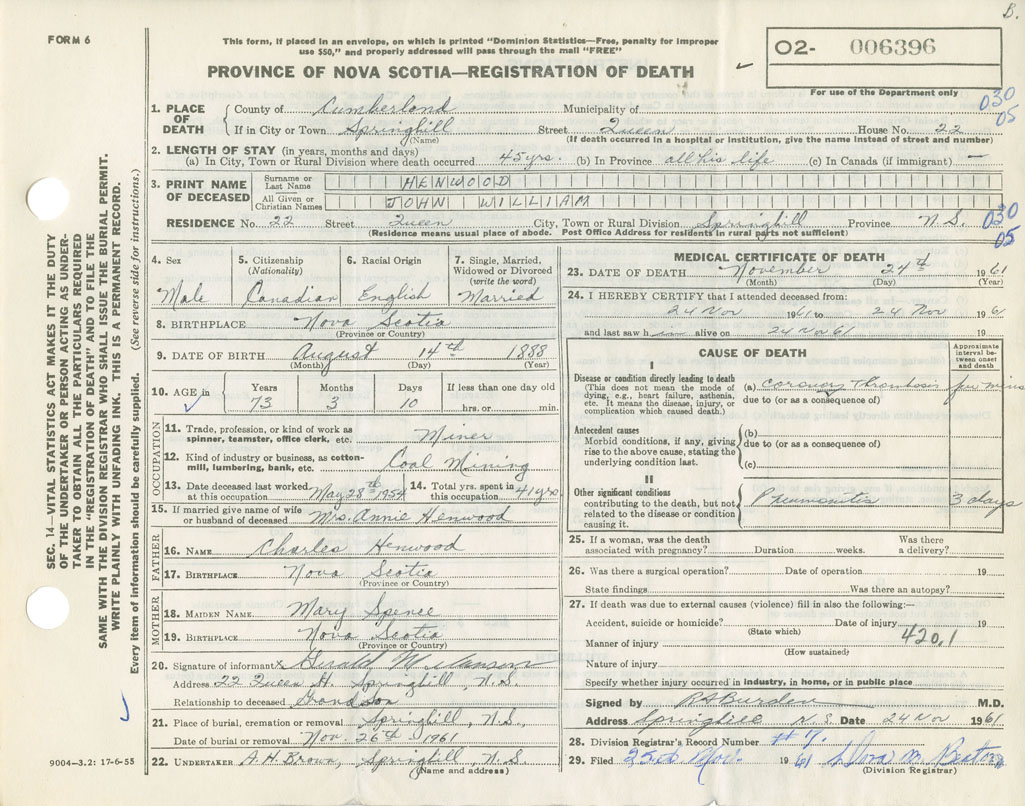 B.
FORM 6
This form, if placed in an envelope, on which is printed "Dominion Statistics—Free, penalty for improper
use $50," and properly addressed will pass through the mail "FREE"
PROVINCE OF NOVA SCOTIA—REGISTRATION OF DEATH
O2- 006396
For use of the Department only
030
05
1. PLACE OF DEATH
County of Cumberland Municipality of
If in City or Town Springhill Street Queen House No. 22
(Name) (If death occurred in a hospital or institution, give the name instead of street and number)
2. LENGTH OF STAY (in years, months and days)
(a) In City, Town or Rural Division where death occurred 45 yrs. (b) In Province all his life (c) In Canada (if immigrant) —
3. PRINT NAME OF DECEASED
Surname or Last Name HENWOOD
All Given or Christian Names JOHN WILLIAM
RESIDENCE No. 22 Street Queen City, Town or Rural Division Springhill Province N.S.
(Residence means usual place of abode. Post Office Address for residents in rural parts not sufficient)
030
05
4. Sex
Male
5. Citizenship
(Nationality)
Canadian
6. Racial Origin
English
7. Single, Married,
Widowed or Divorced
(write the word)
Married
8. BIRTHPLACE Nova Scotia
(Province or Country)
9. DATE OF BIRTH August 14th 1888
(Month) (Day) (Year)
10. AGE in
Years Months Days If less than one day old
73 3 10 hrs. or min.
OCCUPATION
11. Trade, profession, or kind of work as
spinner, teamster, office clerk, etc. Miner
12. Kind of industry or business, as cotton-
mill, lumbering, bank, etc. Coal Mining
13. Date deceased last worked
at this occupation May 28th 1954
14. Total yrs. spent in
this occupation 41 yrs
15. If married give name of wife
or husband of deceased Mrs. Annie Henwood
FATHER
16. NAME Charles Henwood
17. BIRTHPLACE Nova Scotia
(Province or Country)
MOTHER
18. MAIDEN NAME Mary Spence
19. BIRTHPLACE Nova Scotia
(Province or Country)
20. Signature of informant x Gerald
Address 22 Queen St. Springhill, N.S.
Relationship to deceased Grandson
21. Place of burial, cremation or removal Springhill, N.S.,
Date of burial or removal Nov. 26th 1961
22. UNDERTAKER A.H. Brown, Springhill, N.S.
(Name and address)
MEDICAL CERTIFICATE OF DEATH
23. DATE OF DEATH November 24th 1961
(Month) (Day) (Year)
24. I HEREBY CERTIFY that I attended deceased from:
24 Nov 1961 to 24 Nov 1961
and last saw h alive on 24 Nov 61 19
CAUSE OF DEATH
Approximate
interval be-
tween onset
and death
I
Disease or condition directly leading to death
(This does not mean the mode of
dying, e.g., heart failure, asthenia,
etc. It means the disease, injury, or
complication which caused death.)
(a) coronary Thrombosis few mins
due to (or as a consequence of)
Antecedent causes
Morbid conditions, if any, giving
rise to the above cause, stating the
underlying condition last.
(b)
due to (or as a consequence of)
(c)
II
Other significant conditions
contributing to the death, but not
related to the disease or condition
causing it.
Pneumonitis 3 days
25. If a woman, was the death
associated with pregnancy? Duration weeks. Was there
a delivery?
26. Was there a surgical operation? Date of operation 19
State findings Was there an autopsy?
27. If death was due to external causes (violence) fill in also the following:—
Accident, suicide or homicide? Date of injury 19
(State which)
420.1
Manner of injury
(How sustained)
Nature of injury
Specify whether injury occurred in industry, in home, or in public place
Signed by R A Burden M.D.
Address Springhill N.S. Date 24 Nov 1961
28. Division Registrar's Record Number #7.
29. Filed 25th Nov. 1961
(Division Registrar)
SEC. 14—VITAL STATISTICS ACT MAKES IT THE DUTY
OF THE UNDERTAKER OR PERSON ACTING AS UNDER-
TAKER TO OBTAIN ALL THE PARTICULARS REQUIRED
IN THE "REGISTRATION OF DEATH" AND TO FILE THE
SAME WITH THE DIVISION REGISTRAR WHO SHALL ISSUE THE BURIAL PERMIT.
WRITE PLAINLY WITH UNFADING INK. THIS IS A PERMANENT RECORD.
Every item of information should be carefully supplied. (See reverse side for instructions.)
9004—3.2: 17-6-55